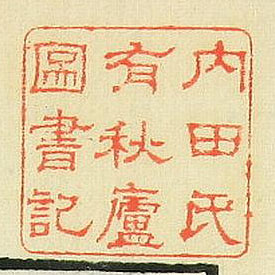 內田氏
有秋廬
圖書記